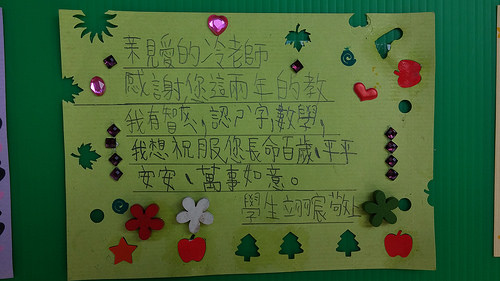 親愛的冷老師
感謝您這兩年的教
我有智慧,認ㄕ字,數學,
我想祝服您長命百歲、平平
安安、萬事如意。
學生翊宸敬上